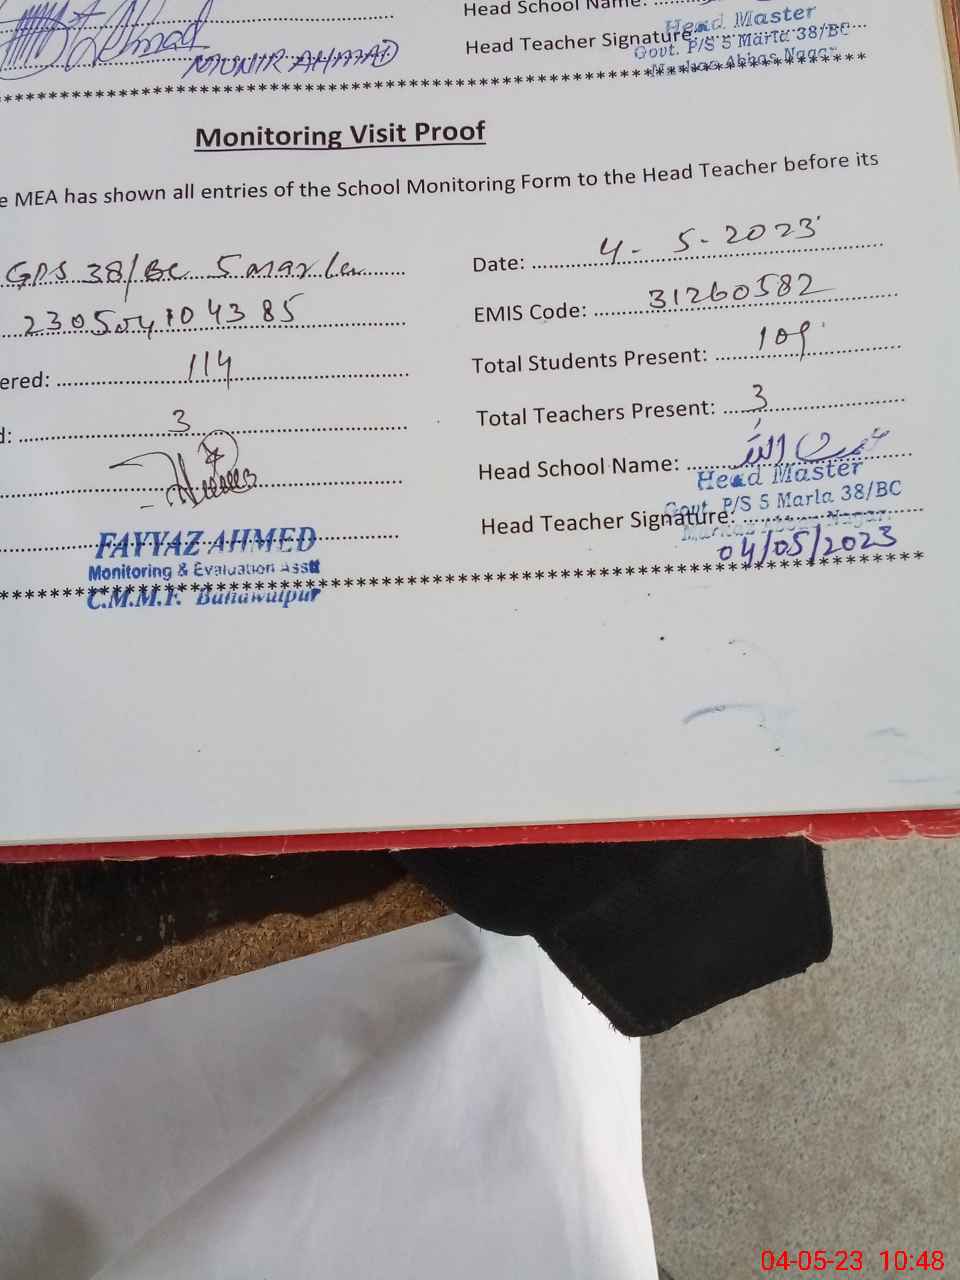 Head School Name:
Head Master
Head Teacher Signature:
Govt. P/S 5 Marla 38/BC
Abbas Nagar
MUNIR AHMAD
****************************************
Monitoring Visit Proof
e MEA has shown all entries of the School Monitoring Form to the Head Teacher before its
GPS 38/BC 5 marla
Date: 4-5-2023
2305054104385
EMIS Code: 31260582
ered: 114
Total Students Present: 109
d: 3
Total Teachers Present: 3
Head School Name:
Head Master
Govt. P/S 5 Marla 38/BC
Head Teacher Signature:
Nagar
04/05/2023
FAYYAZ AHMED
Monitoring & Evaluation Asstt
C.M.M.F. Bahawalpur
****************************************
04-05-23 10:48